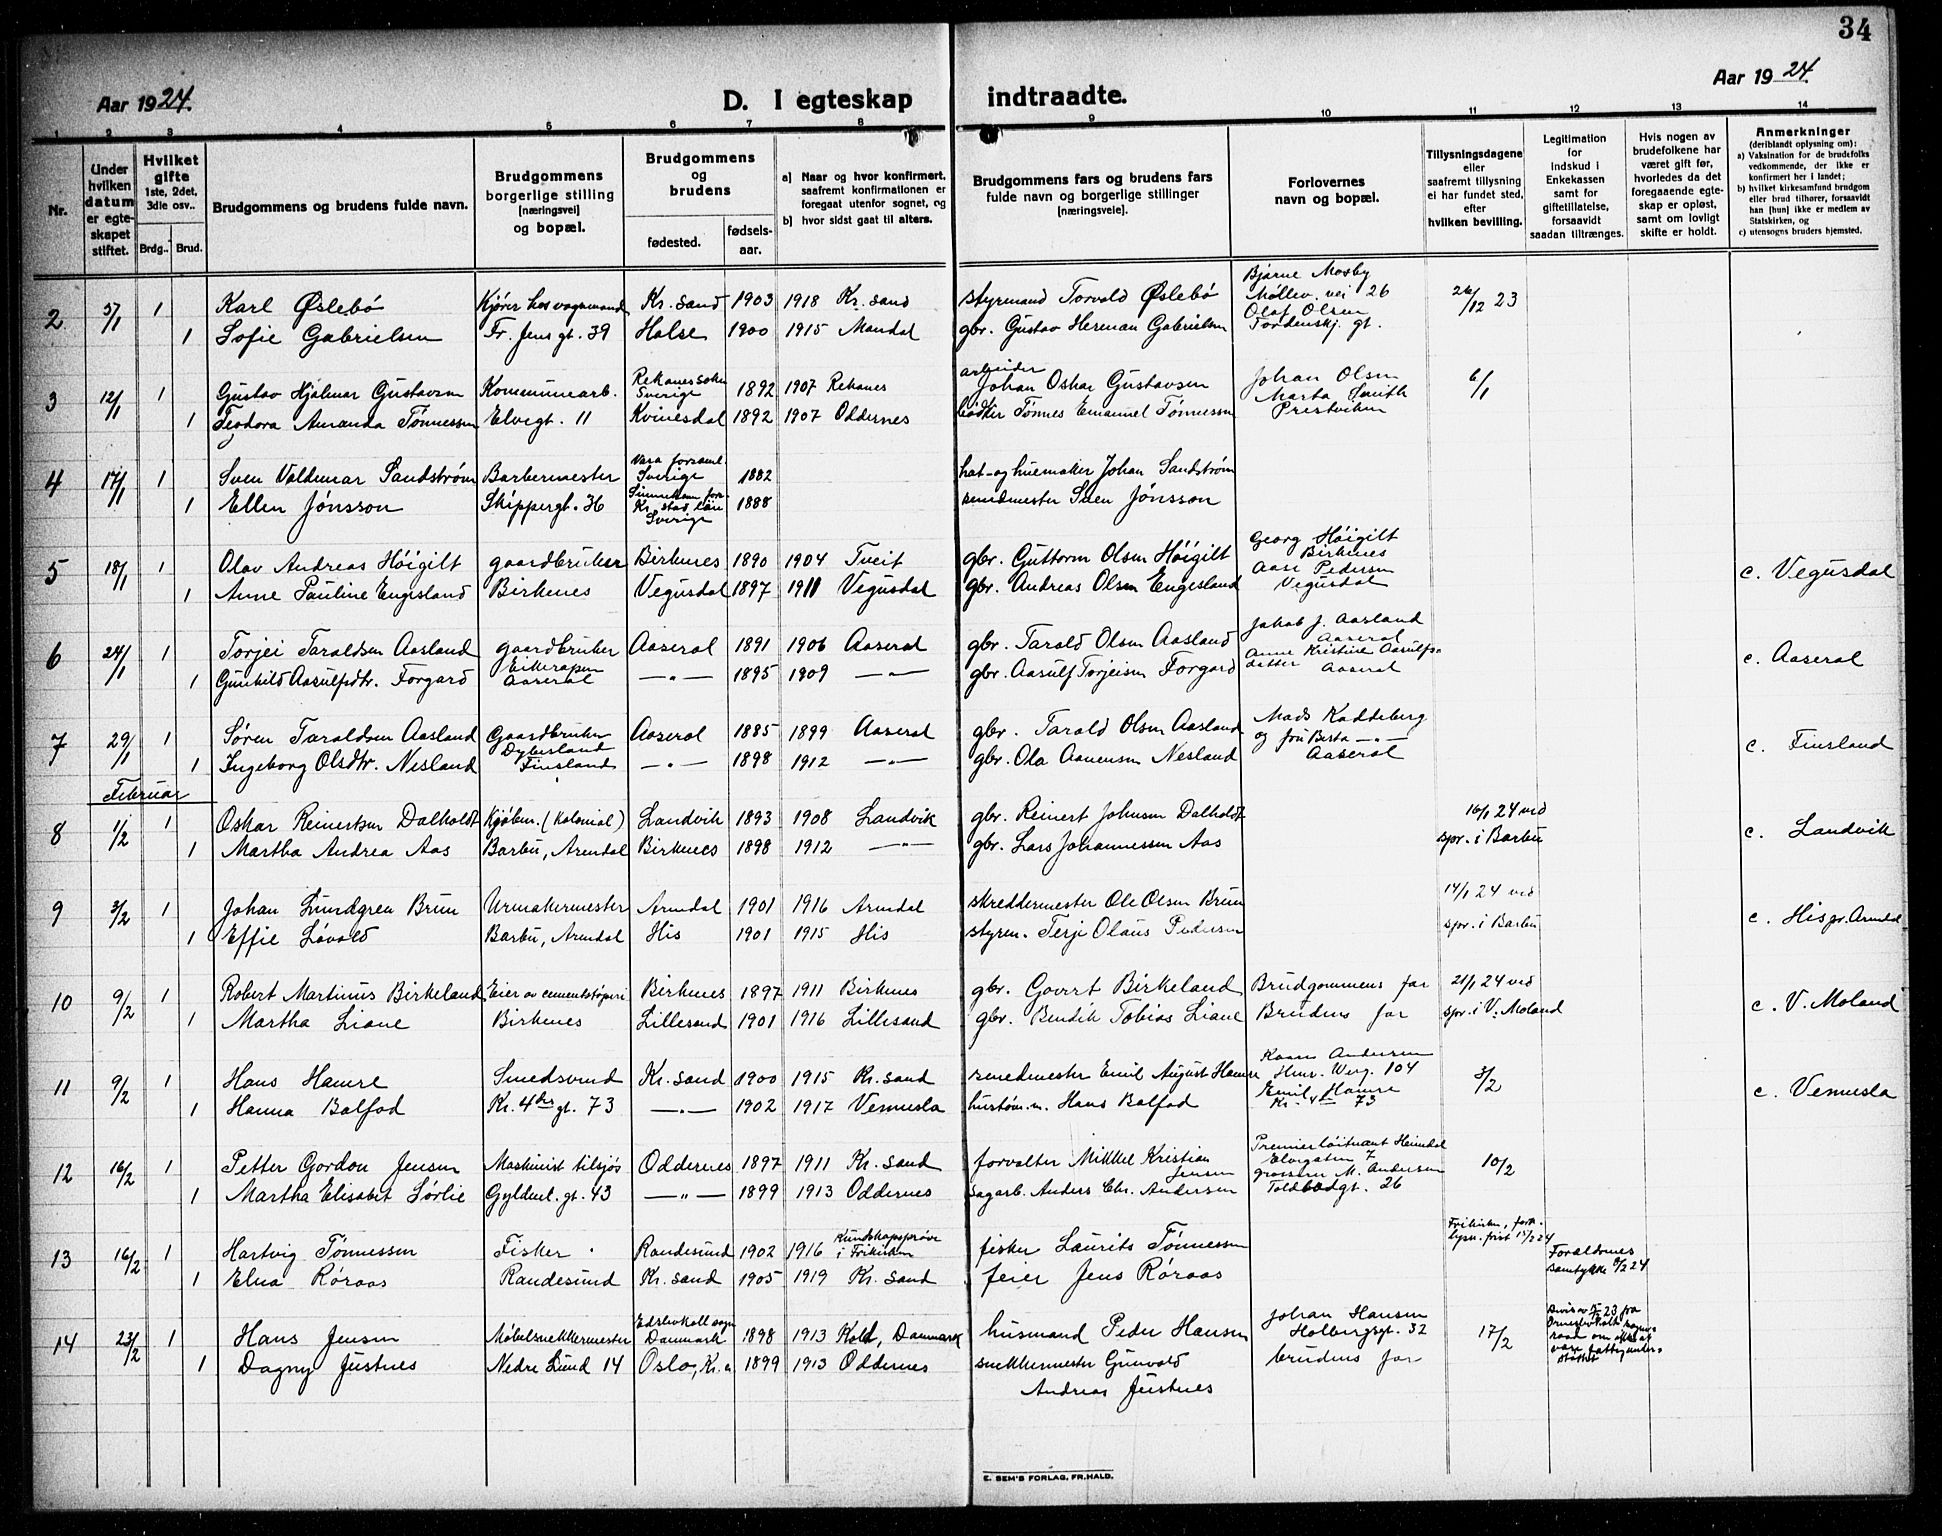 34
Aar 1924.
D. I egteskap indtraadte.
Aar 1924.
1 2 3 4 5 6 7 8 9 10 11 12 13 14
Nr.
Under hvilken datum er egteskapet stiftet.
Hvilket gifte 1ste, 2det, 3die osv..
Brdg.. Brud.
Brudgommens og brudens fulde navn.
Brudgommens borgerlige stilling [næringsvei] og bopæl.
Brudgommens og brudens
fødested.
fødsels-aar.
a) Naar og hvor konfirmert, saafremt konfirmationen er foregaaet utenfor sognet, og
b) hvor sidst gaat til alters.
Brudgommens fars og brudens fars fulde navn og borgerlige stillinger [næringsveie].
Forlovernes navn og bopæl.
Tillysningsdagene eller saafremt tillysning ei har fundet sted, efter hvilken bevilling.
Legitimation for Indskud i Enkekassen samt for giftetillatelse, forsaavidt saadan tiltrænges.
Hvis nogen av brudefolkene har været gift før, hvorledes da det foregaaende egteskap er opløst, samt om lovligt skifte er holdt.
Anmerkninger (deriblandt oplysning om):
a) Vaksination for de brudefolks vedkommende, der ikke er konfirmert her i landet;
b) hvilket kirkesamfund brudgom eller brud tilhører, forsaavidt han [hun] ikke er medlem av Statskirken, og
c) utensogns bruders hjemsted.
2 5/1 1 Karl Øslebø Kjører hos vognmand Kr. sand 1903 1918 Kr. sand styrmand Torvald Øslebø Bjarne Mosby Møllev. vei 26 26/12 23
1 Sofie Gabrielsen Fr. Jens gt. 39 Halse 1900 1915 Mandal gbr. Gustav Herman Gabrielsen Olaf Olsen Tordenskj. gt.
3 12/1 1 Gustav Hjalmar Gustavsen Kommunearb. Rekanes sokn Sverige 1892 1907 Rekanes arbeider Johan Oskar Gustavsen Johan Olsen 6/1
1 Teodora Amanda Tønnessen Elvegt. 11 Kvinesdal 1892 1907 Oddernes bødker Tønnes Emanuel Tønnessen Marta Smith Prestviken
4 17/1 1 Sven Valdemar Sandstrøm Barbermester Vara forsaml. Sverige 1882 hat- og huemaker Johan Sandstrøm
1 Ellen Jønsson Skippergt. 36 Kr. stad län Sverige 1888 smedmester Sven Jønsson
5 18/1 1 Olav Andreas Høigilt gaardbruker Birkenes 1890 1904 Tveit gbr. Guttorm Olsen Høigilt Georg Høigilt Birkenes
1 Anne Pauline Engesland Birkenes Vegusdal 1897 1911 Vegusdal gbr. Andreas Olsen Engesland Aase Pedersen Vegusdal c. Vegusdal
6 24/1 1 Torjei Taraldsen Aasland gaardbruker Aaseral 1891 1906 Aaseral gbr. Tarald Olsen Aasland Jakob J. Aasland Aaseral
1 Gunhild Aasulfsdtr. Forgard Eikerapen Aaseral —"— 1895 1909 —"— gbr. Aasulf Torjeisen Forgard Anne Kristine Aasulfsdatter Aaseral c. Aaseral
7 29/1 1 Søren Taraldsen Aasland Gaardbruker Aaseral 1885 1899 Aaseral gbr. Tarald Olsen Aasland Mads Kaddeberg
1 Ingeborg Olsdtr. Nesland Dybesland Finsland —"— 1898 1912 —"— gbr. Ola Aanensen Nesland og fru Berta —"— Aaseral c. Finsland
Februar
8 1/2 1 Oskar Reinertsen Dalholdt Kjøbm. (Kolonial) Landvik 1893 1908 Landvik gbr. Reinert Johnsen Dalholdt 16/1 24 ved
1 Martha Andrea Aas Barbu, Arendal Birkenes 1898 1912 —"— gbr. Lars Johannessen Aas spr. i Barbu c. Landvik
9 3/2 1 Johan Lundgren Brun Urmakermester Arendal 1901 1916 Arendal skreddermester Ole Olsen Brun 14/1 24 ved
1 Effie Løvold Barbu, Arendal His 1901 1915 His styrm. Terje Olaus Pedersen spr. i Barbu c. His pr. Arendal
10 9/2 1 Robert Martinus Birkeland Eier av cementstøperi Birkenes 1897 1911 Birkenes gbr. Govert Birkeland Brudgommens far 21/1 24 ved
1 Martha Liane Birkenes Lillesand 1901 1916 Lillesand gbr. Bendik Tobias Liane Brudens far spr. i V. Moland c. V. Moland
11 9/2 1 Hans Hamre Smedsvend Kr. sand 1900 1915 Kr. sand smedmester Emil August Hamre Kaare Andersen Henr. Werg. 104 3/2
1 Hanna Balfod Kr. 4des gt. 73 —"— 1902 1917 Vennesla hustøm.m. Hans Balfod Emil Hamre Kr. 4 — 73 c. Vennesla
12 16/2 1 Petter Gordon Jensen Maskinist tilsjøs Oddernes 1897 1911 Kr. sand forvalter Mikkel Kristian Jensen Premierløitnant Heimdal Elvegaten 7 10/2
1 Martha Elisabet Sørlie Gyldenl. gt. 43 —"— 1899 1913 Oddernes sagarb. Anders Chr. Andersen grosserer M. Andersen Toldbodgt. 26
13 16/2 1 Hartvig Tønnessen Fisker Randesund 1902 1916 Kundskapsprøve i Frikirken fisker Laurits Tønnessen Frikirken,
1 Elna Røraas Randesund Kr. sand 1905 1919 Kr. sand feier Jens Røraas Forældrenes samtykke 8/2 24
14 23/2 1 Hans Jensen Møbelsnekkermester Danmark 1898 1913 Kold, Danmark husmand Peder Hansen Johan Hansen Holbergsgt. 32 17/2
1 Dagny Justnes Nedre Lund 14 Oslo, Kr.a 1899 1913 Oddernes snekkermester Gunvald Andreas Justnes brudens far
E. SEM'S FORLAG, FR.HALD.